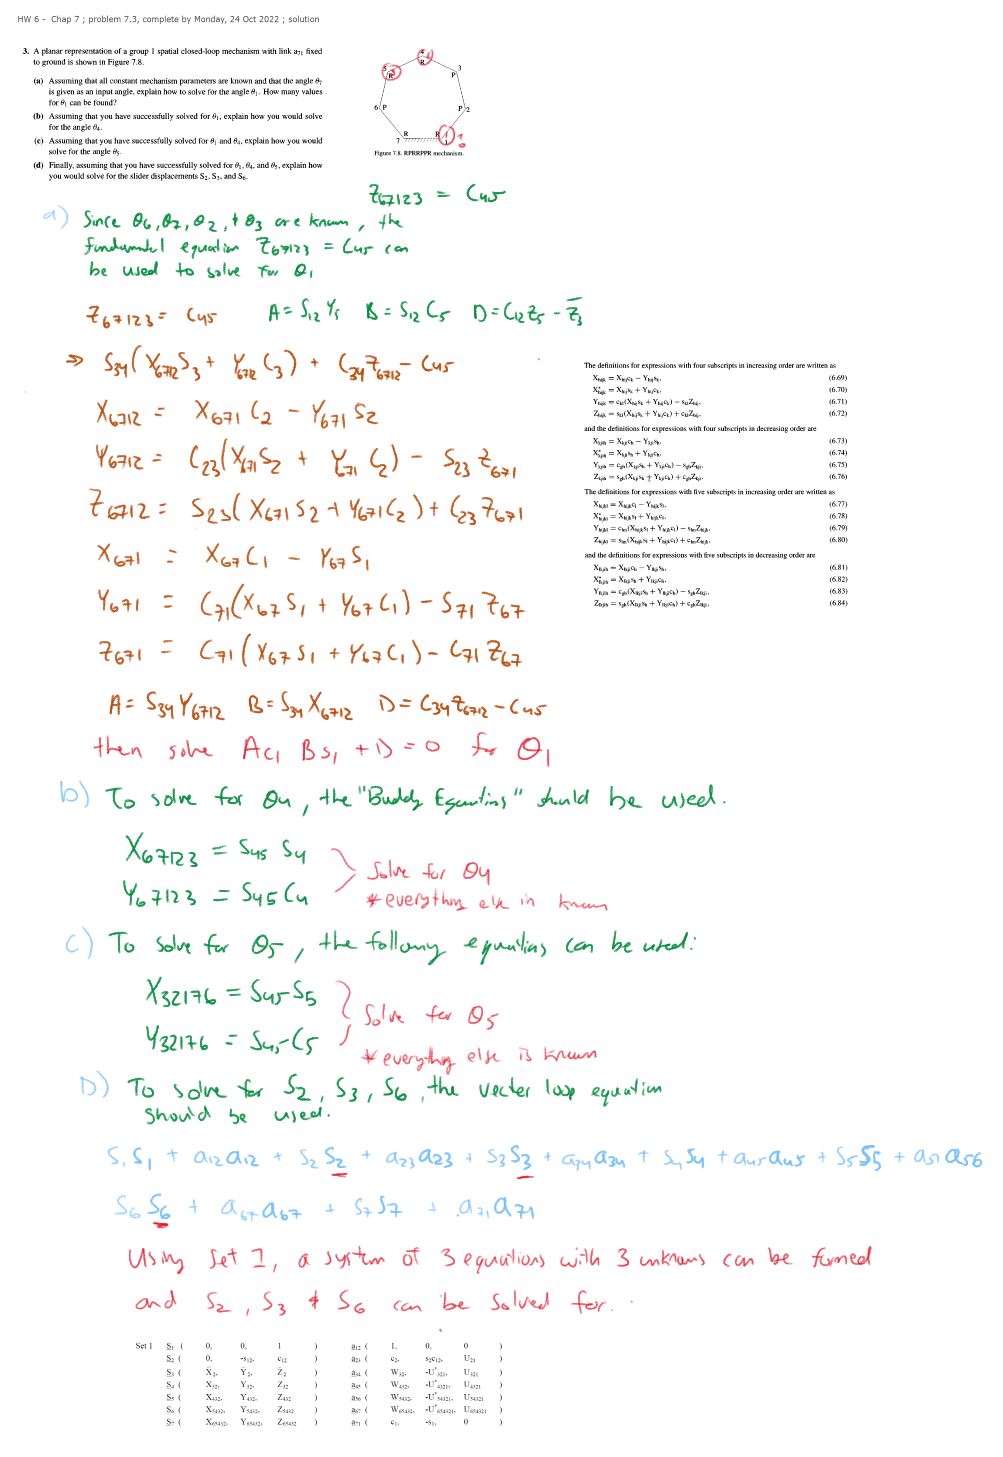 HW 6 - Chap 7 ; problem 7.3, complete by Monday, 24 Oct 2022 ; solution
3. A planar representation of a group 1 spatial closed-loop mechanism with link a₇₁ fixed
to ground is shown in Figure 7.8.
(a) Assuming that all constant mechanism parameters are known and that the angle θ₇
is given as an input angle, explain how to solve for the angle θ₁. How many values
for θ₁ can be found?
(b) Assuming that you have successfully solved for θ₁, explain how you would solve
for the angle θ₄.
(c) Assuming that you have successfully solved for θ₁ and θ₄, explain how you would
solve for the angle θ₅.
(d) Finally, assuming that you have successfully solved for θ₁, θ₄, and θ₅, explain how
you would solve for the slider displacements S₂, S₃, and S₆.
R
R
3
P
6 P
P 2
R
7
R
1
Figure 7.8. RPRRPPR mechanism.
Z67123 = C45
a) Since θ6, θ7, θ2, + θ3 are known, the
fundamental equation Z67123 = C45 can
be used to solve for θ1
Z67123 = C45 A = S12 Y5 B = S12 C5 D = C12 Z5 - Z̄3
⇒ S34(X6712 S3 + Y6712 C3) + C34 Z6712 - C45
X6712 = X671 C2 - Y671 S2
Y6712 = C23(X671 S2 + Y671 C2) - S23 Z671
Z6712 = S23(X671 S2 + Y671 C2) + C23 Z671
X671 = X67 C1 - Y67 S1
Y671 = C71(X67 S1 + Y67 C1) - S71 Z67
Z671 = C71(X67 S1 + Y67 C1) - C71 Z67
A = S34 Y6712 B = S34 X6712 D = C34 Z6712 - C45
then solve Ac1 Bs1 + D = 0 for θ1
The definitions for expressions with four subscripts in increasing order are written as
(6.69)
(6.70)
(6.71)
(6.72)
and the definitions for expressions with four subscripts in decreasing order are
(6.73)
(6.74)
(6.75)
(6.76)
The definitions for expressions with five subscripts in increasing order are written as
(6.77)
(6.78)
(6.79)
(6.80)
and the definitions for expressions with five subscripts in decreasing order are
(6.81)
(6.82)
(6.83)
(6.84)
b) To solve for θ4, the "Buddy Equations" should be used.
X67123 = S45 S4
Y67123 = S45 C4
Solve for θ4
* everything else is known
c) To solve for θ5, the following equations can be used:
X32176 = S45 S5
Y32176 = S45 C5
Solve for θ5
* everything else is known
D) To solve for S2, S3, S6, the vector loop equation
should be used.
S1 S1 + a12 a12 + S2 S2 + a23 a23 + S3 S3 + a34 a34 + S4 S4 + a45 a45 + S5 S5 + a51 a56
S6 S6 + a67 a67 + S7 S7 + a71 a71
Using Set 1, a system of 3 equations with 3 unknowns can be formed
and S2, S3 & S6 can be solved for.
Set 1 S₁ ( 0, 0, 1 ) a₁₂ ( 1, 0, 0 )
S₂ ( 0, -s₁₂, c₁₂ ) a₂₃ ( c₂, s₂c₁₂, U₂₁ )
S₃ ( X̄₂, Ȳ₂, Z̄₂ ) a₃₄ ( W₃₂, -U*₃₂₁, U₃₂₁ )
S₄ ( X₃₂, Y₃₂, Z₃₂ ) a₄₅ ( W₄₃₂, -U*₄₃₂₁, U₄₃₂₁ )
S₅ ( X₄₃₂, Y₄₃₂, Z₄₃₂ ) a₅₆ ( W₅₄₃₂, -U*₅₄₃₂₁, U₅₄₃₂₁ )
S₆ ( X₅₄₃₂, Y₅₄₃₂, Z₅₄₃₂ ) a₆₇ ( W₆₅₄₃₂, -U*₆₅₄₃₂₁, U₆₅₄₃₂₁ )
S₇ ( X₆₅₄₃₂, Y₆₅₄₃₂, Z₆₅₄₃₂ ) a₇₁ ( c₁, -s₁, 0 )